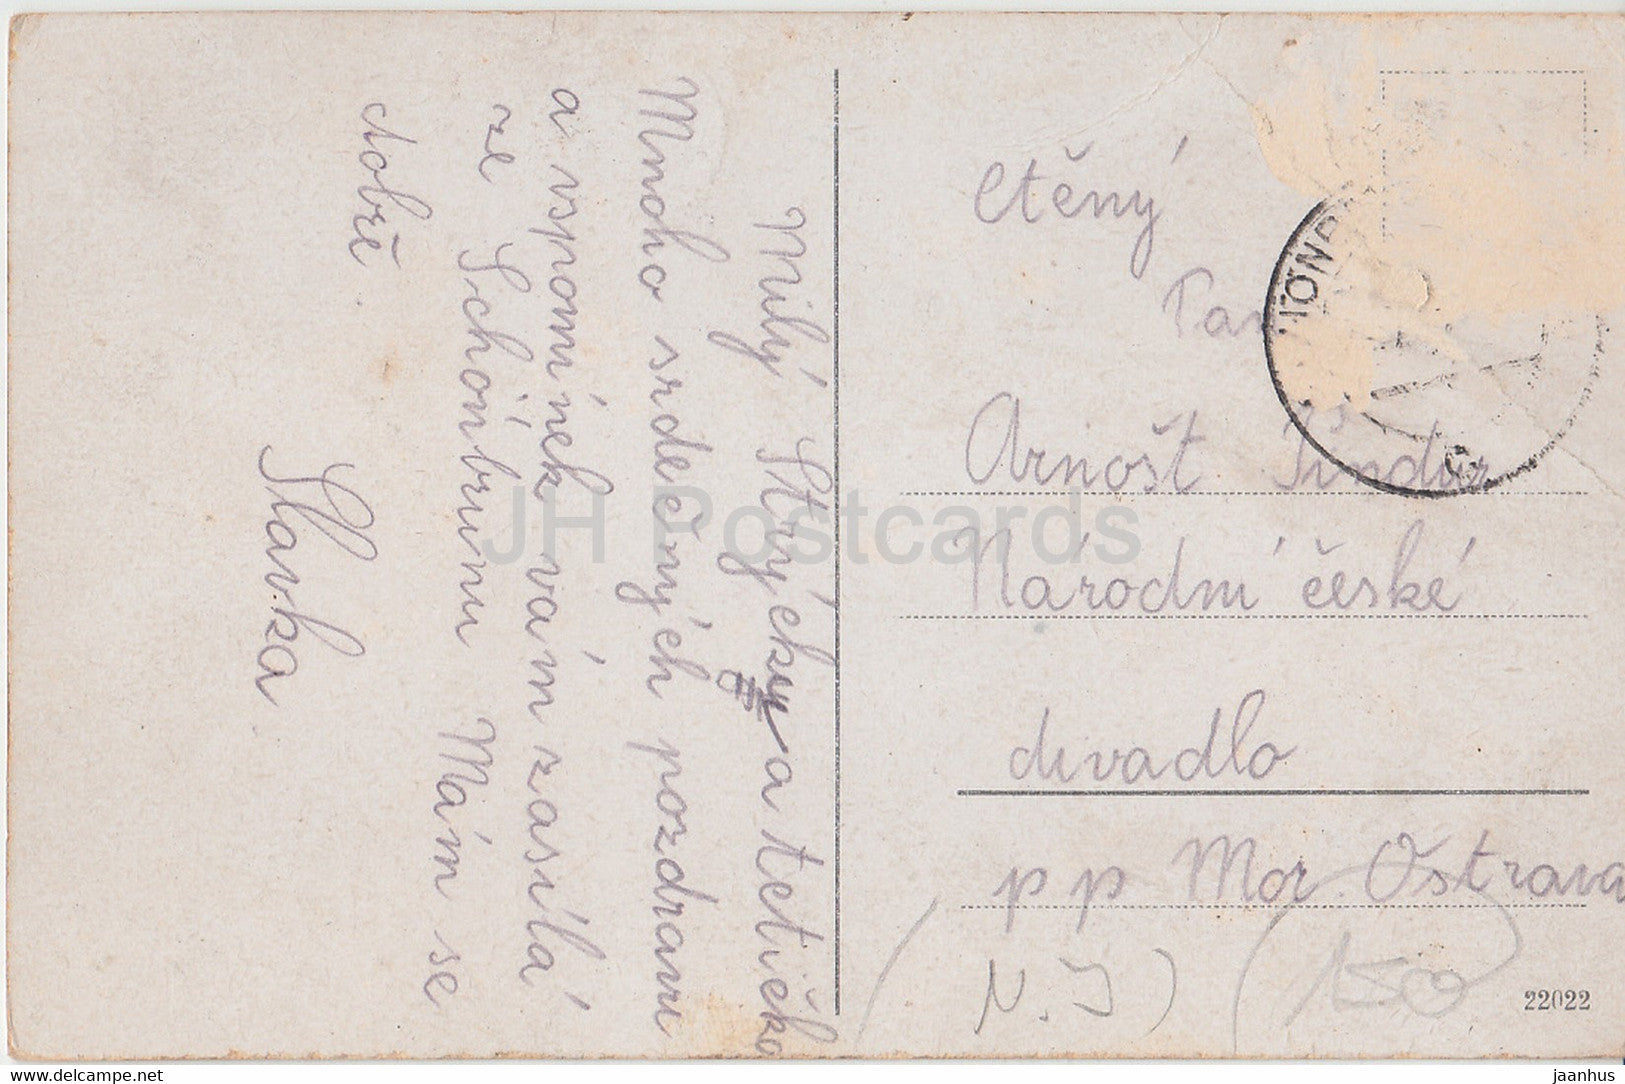 Milý Strýčku a tetičko
Mnoho srdečných pozdravu
a vspomínek vám zasílá
ze Schönbrunu Mám se
dobře.
Slavka
Ctěný
Pan
Arnošt
Národní české
divadlo
pp Mor. Ostrava
(N. J) (150
22022
JH Postcards
delcampe.net
jaanhus